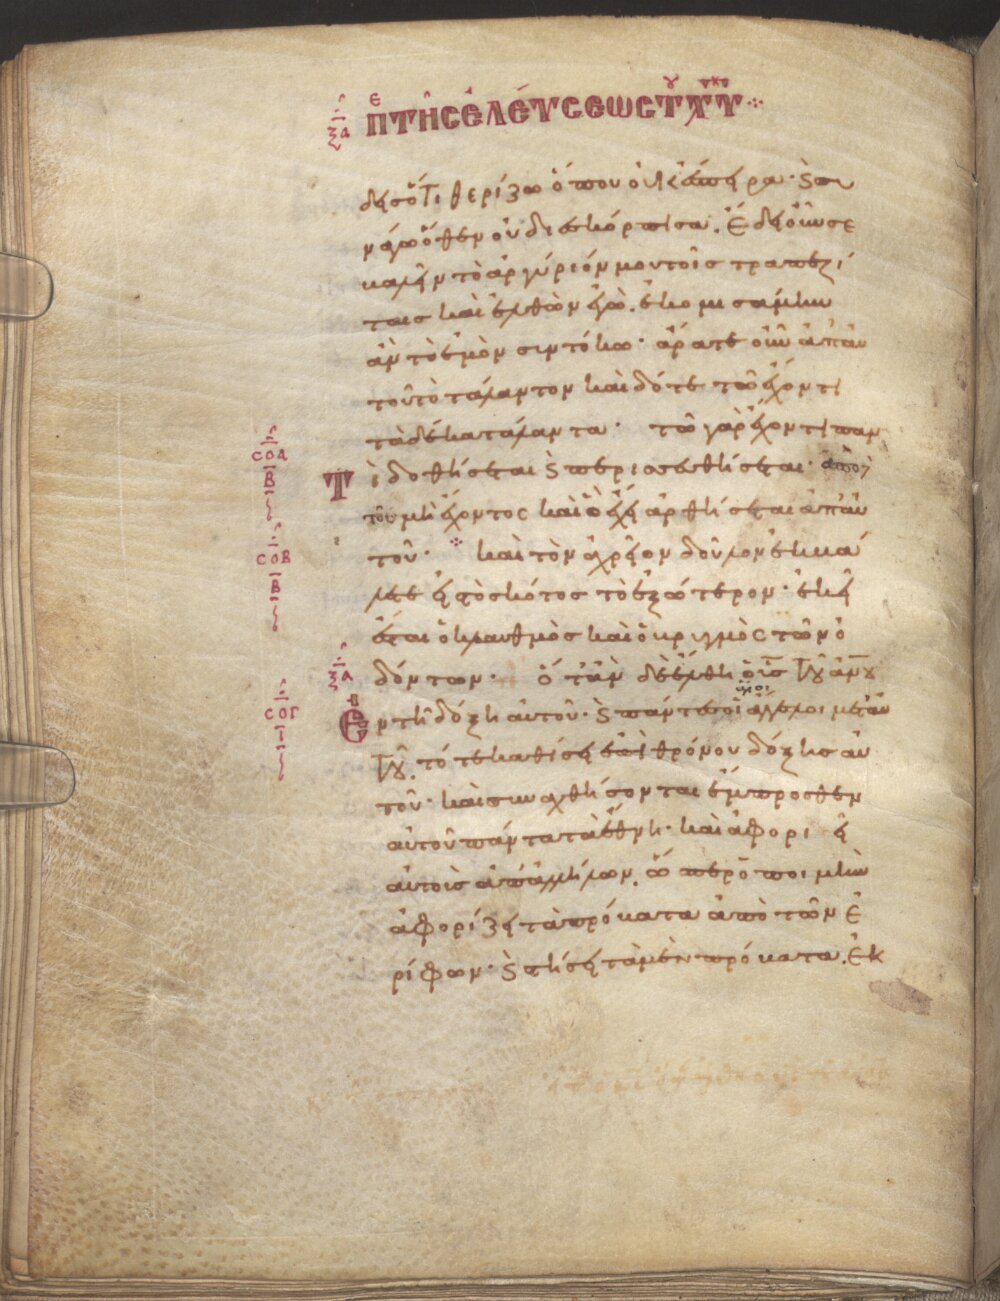 ξα επι τῆς ἐλέυσεως τοῦ χυ
δης ὅτι θερίζω ὅπου οὐκ ἔσπειρα· ϗ συ
νάγω ὅθεν οὐ διεσκόρπισα. ἔδει οὖν σε
βαλεῖν τὸ ἀργύριόν μου τοῖς τραπεζί
ταις καὶ ἐλθὼν ἐγὼ. ἐκομισάμην
ἂν τὸ ἐμὸν σιν τόκω· ἄρατε οὖν ἀπ αυ
τοῦ τὸ τάλαντον καὶ δότε τῶ ἔχοντι
τὰ δέκα τάλαντα· τῶ γὰρ ἔχοντι παν
σοα β τὶ δοθήσεται ϗ περισσευθήσεται· ἀπὸ
τοῦ μὴ ἔχοντος καὶ ὃ ἔχει ἀρθήσεται ἀπ αυ
σοβ β τοῦ· καὶ τὸν ἀχρεῖον δοῦλον ἐκβά
λετε εἰς τὸ σκότος τὸ ἐξώτερον· ἐκεῖ
ἔσται ὁ κλαυθμὸς καὶ ὁ βρυγμὸς τῶν ὀ
ξα δόντων· ὅταν δὲ ἔλθη ὁ υἱς τοῦ ανου
σογ ι ἐν τῆ δόξη αὐτοῦ· ϗ πάντες οἱ ἅγιοι ἄγγελοι μετ αυ
τοῦ. τότε καθίσει ἐπὶ θρόνου δόξης αὐ
τοῦ· καὶ συναχθήσονται ἔμπροσθεν
αὐτοῦ πάντα τὰ ἔθνη· καὶ ἀφοριεῖ
αὐτοὺς ἀπ ἀλλήλων. ὥσπερ ὁ ποιμὴν
ἀφορίζει τὰ πρόβατα ἀπὸ τῶν ἐ
ρίφων· ϗ στήσει τὰ μὲν πρόβατα. ἐκ